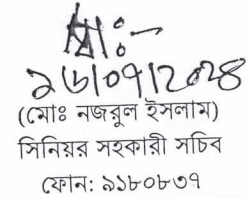 স্বাঃ-
১৬/০৭/২০২৪
(মোঃ নজরুল ইসলাম)
সিনিয়র সহকারী সচিব
ফোন: ৯১৮০৮৩৭